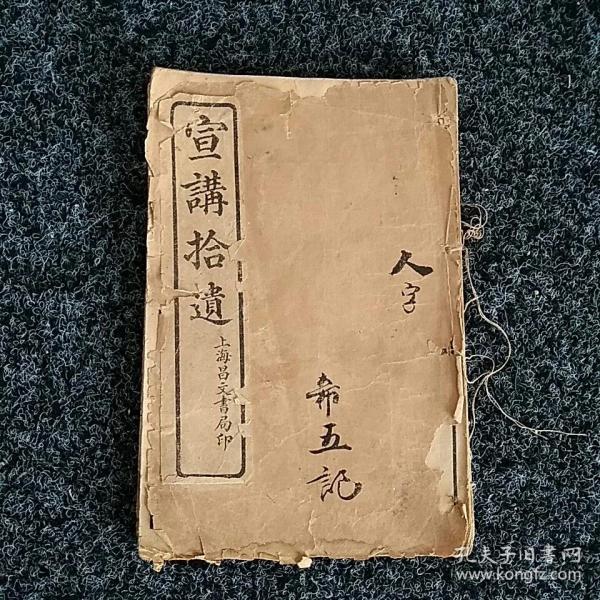 宣講拾遺
上海昌文書局印
人字
五記
孔夫子旧書网
www.kongfz.com